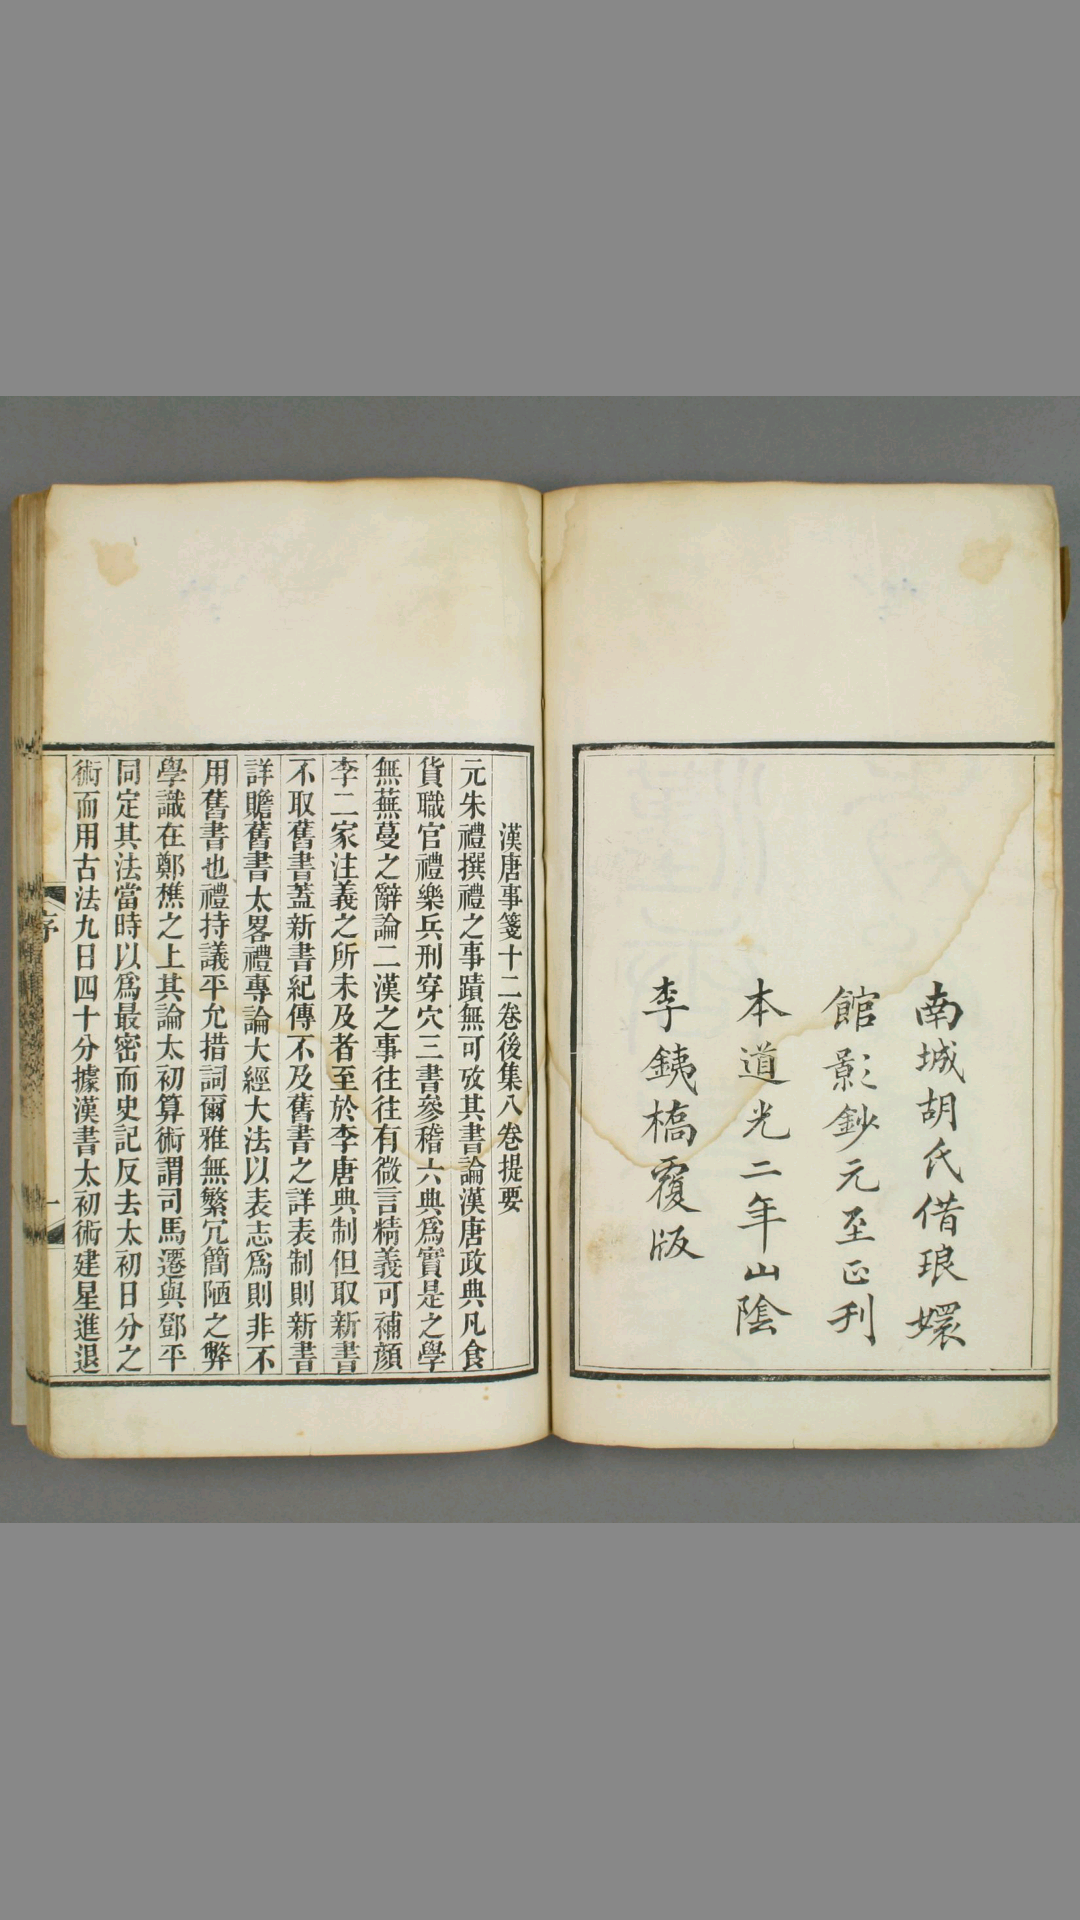 南城胡氏借琅嬛
館影鈔元至正刊
本道光二年山陰
李銕橋覆版
漢唐事箋十二卷後集八卷提要
元朱禮撰禮之事蹟無可攷其書論漢唐政典凡食
貨職官禮樂兵刑穿穴三書參稽六典爲實是之學
無蕪蔓之辭論二漢之事往往有微言精義可補顔
李二家注義之所未及者至於李唐典制但取新書
不取舊書蓋新書紀傳不及舊書之詳表制則新書
詳贍舊書太畧禮專論大經大法以表志爲則非不
用舊書也禮持議平允措詞爾雅無繁冗簡陋之弊
學識在鄭樵之上其論太初算術謂司馬遷與鄧平
同定其法當時以爲最密而史記反去太初日分之
術而用古法九日四十分據漢書太初術建星進退
序
一